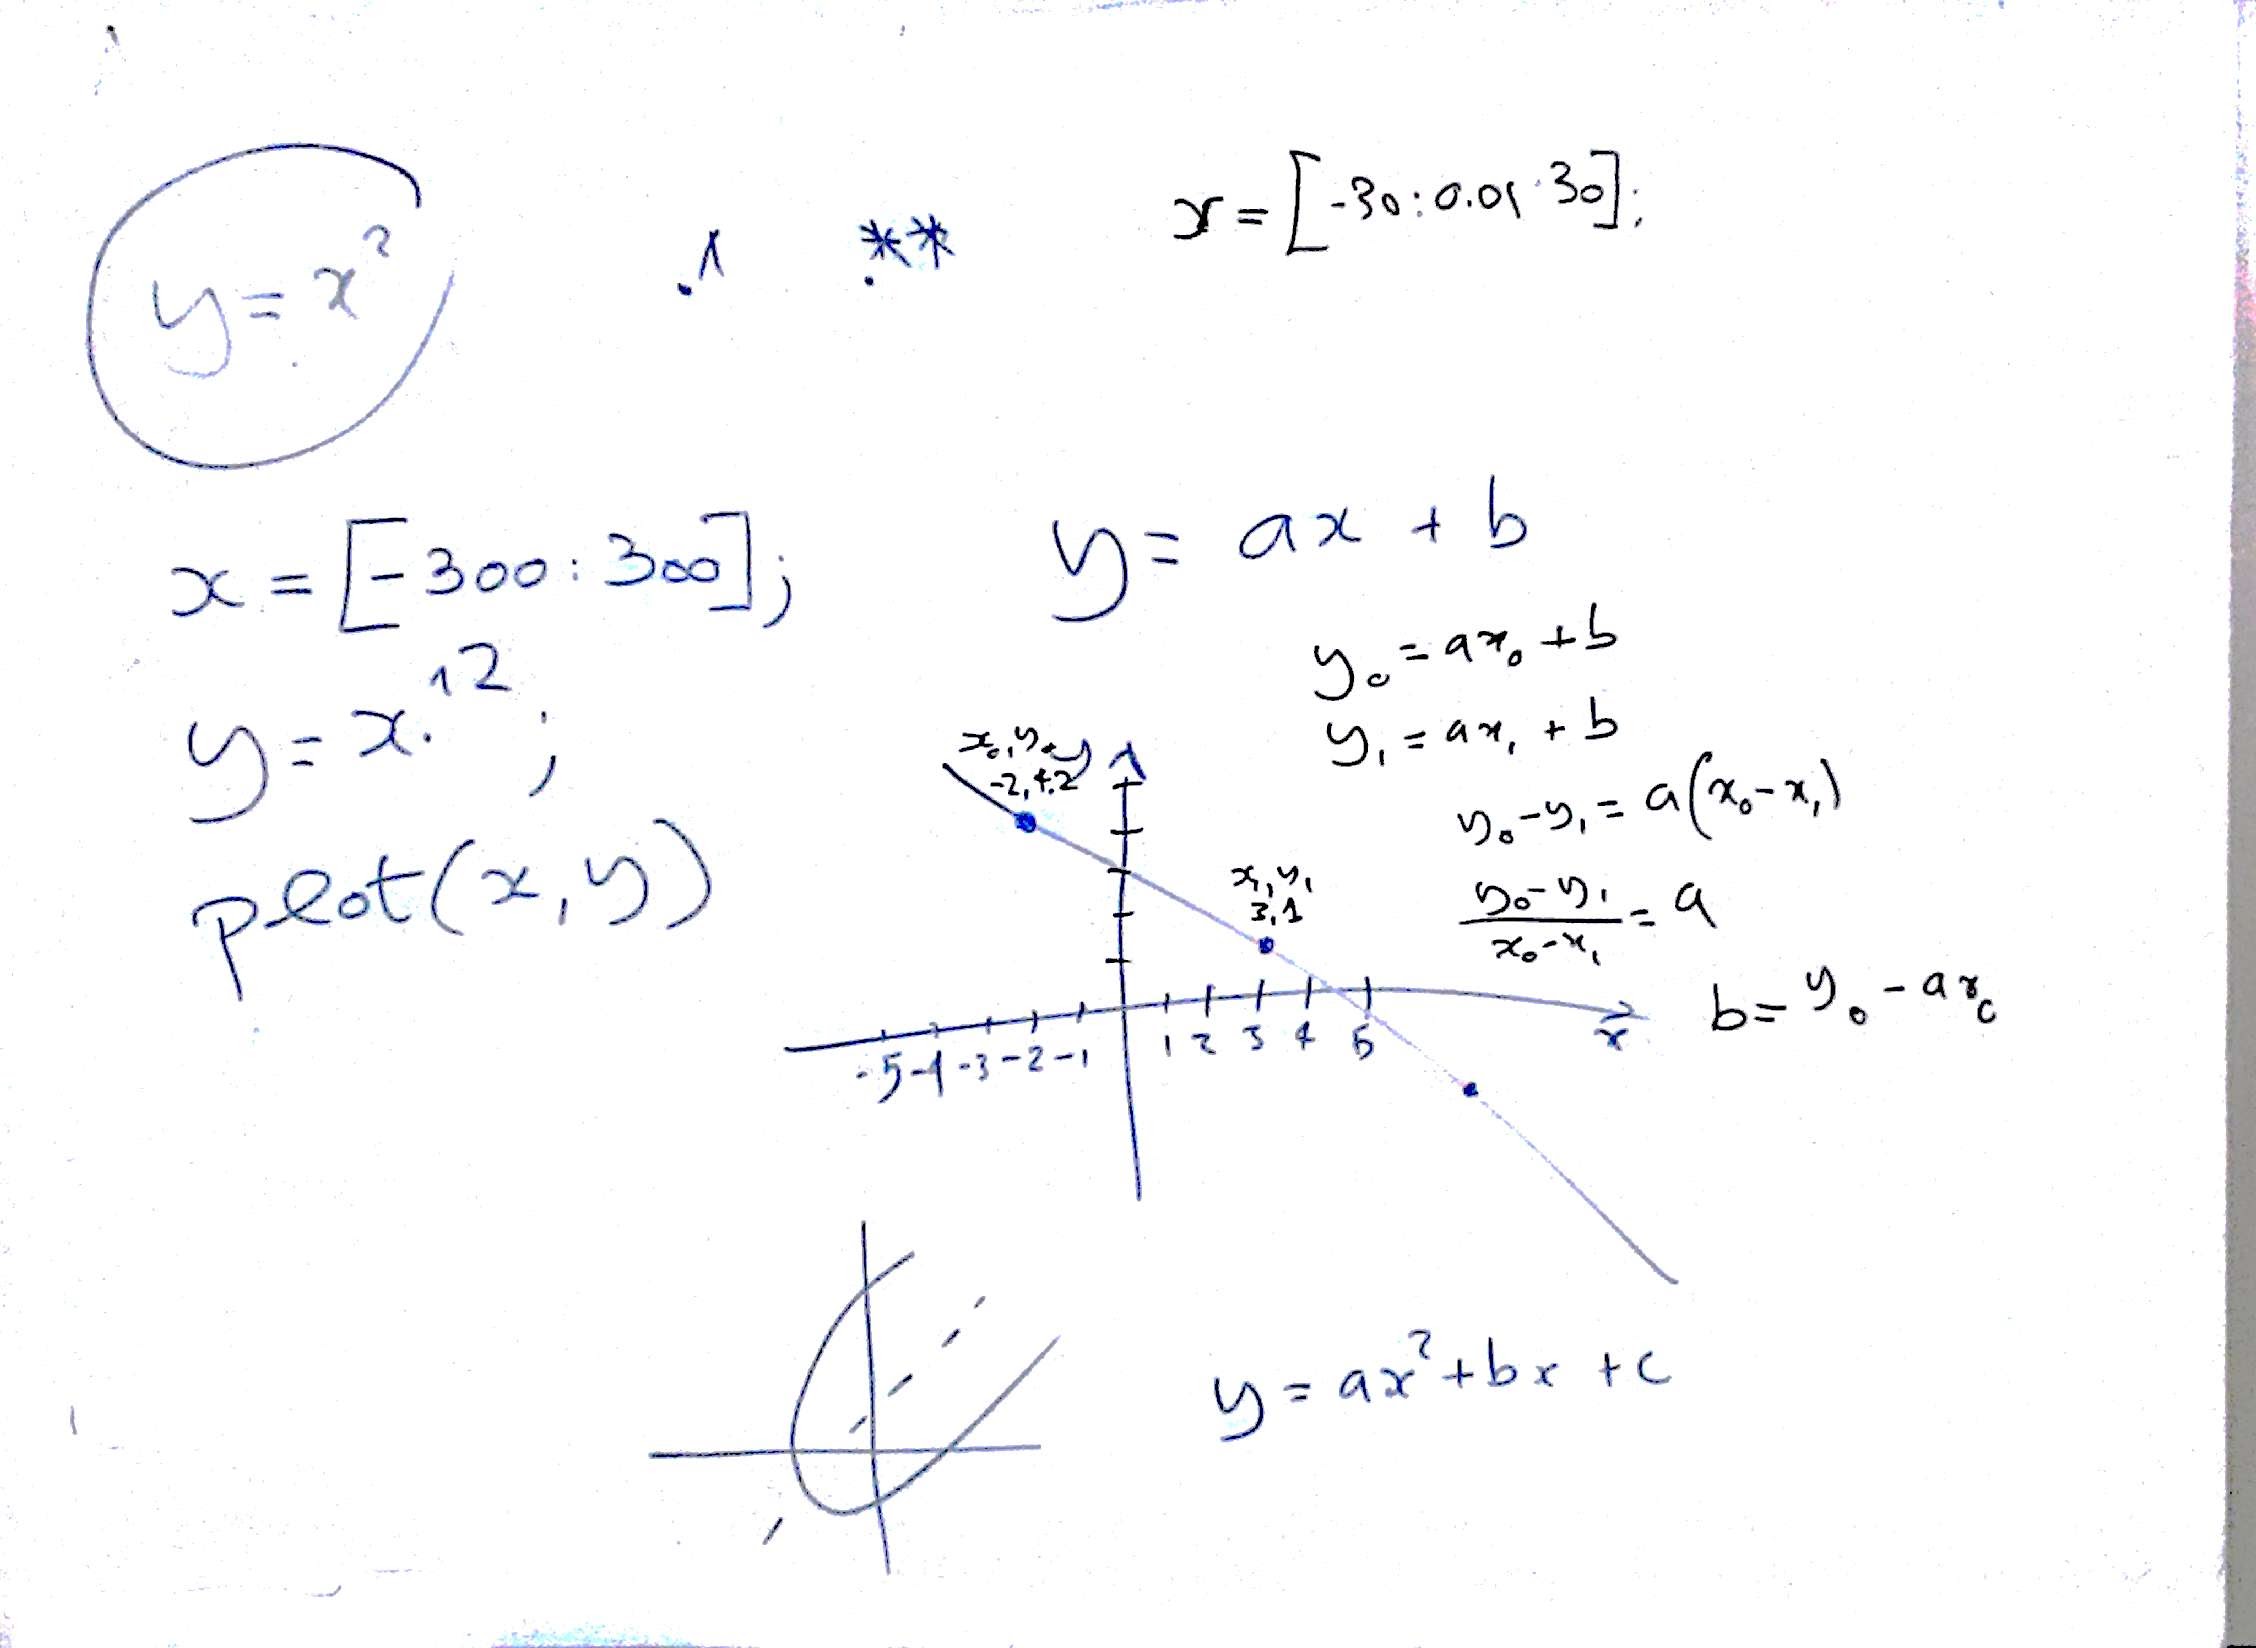 y = x²
.^
.**
x = [-30:0.01:30];
x = [-300:300];
y = x.^2;
plot(x,y)
y = ax + b
y₀ = ax₀ + b
y₁ = ax₁ + b
y₀-y₁ = a(x₀-x₁)
y₀-y₁ / x₀-x₁ = a
b = y₀ - ax₀
x₀,y₀ y
-2,4.2
x₁,y₁
3,1
-5 -4 -3 -2 -1 1 2 3 4 5
x
y = ax² + bx + c